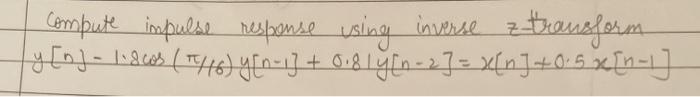 Compute impulse response using inverse z-transform
y[n] - 1.8cos(π/16) y[n-1] + 0.81y[n-2] = x[n] + 0.5 x[n-1]